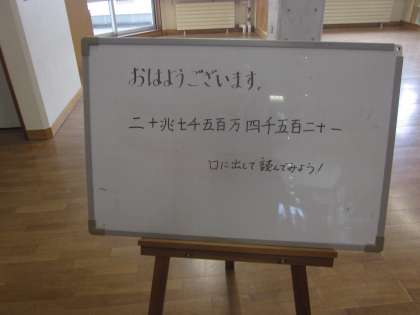 おはようございます。
二十兆七千五百万四千五百二十一
口に出して読んでみよう!